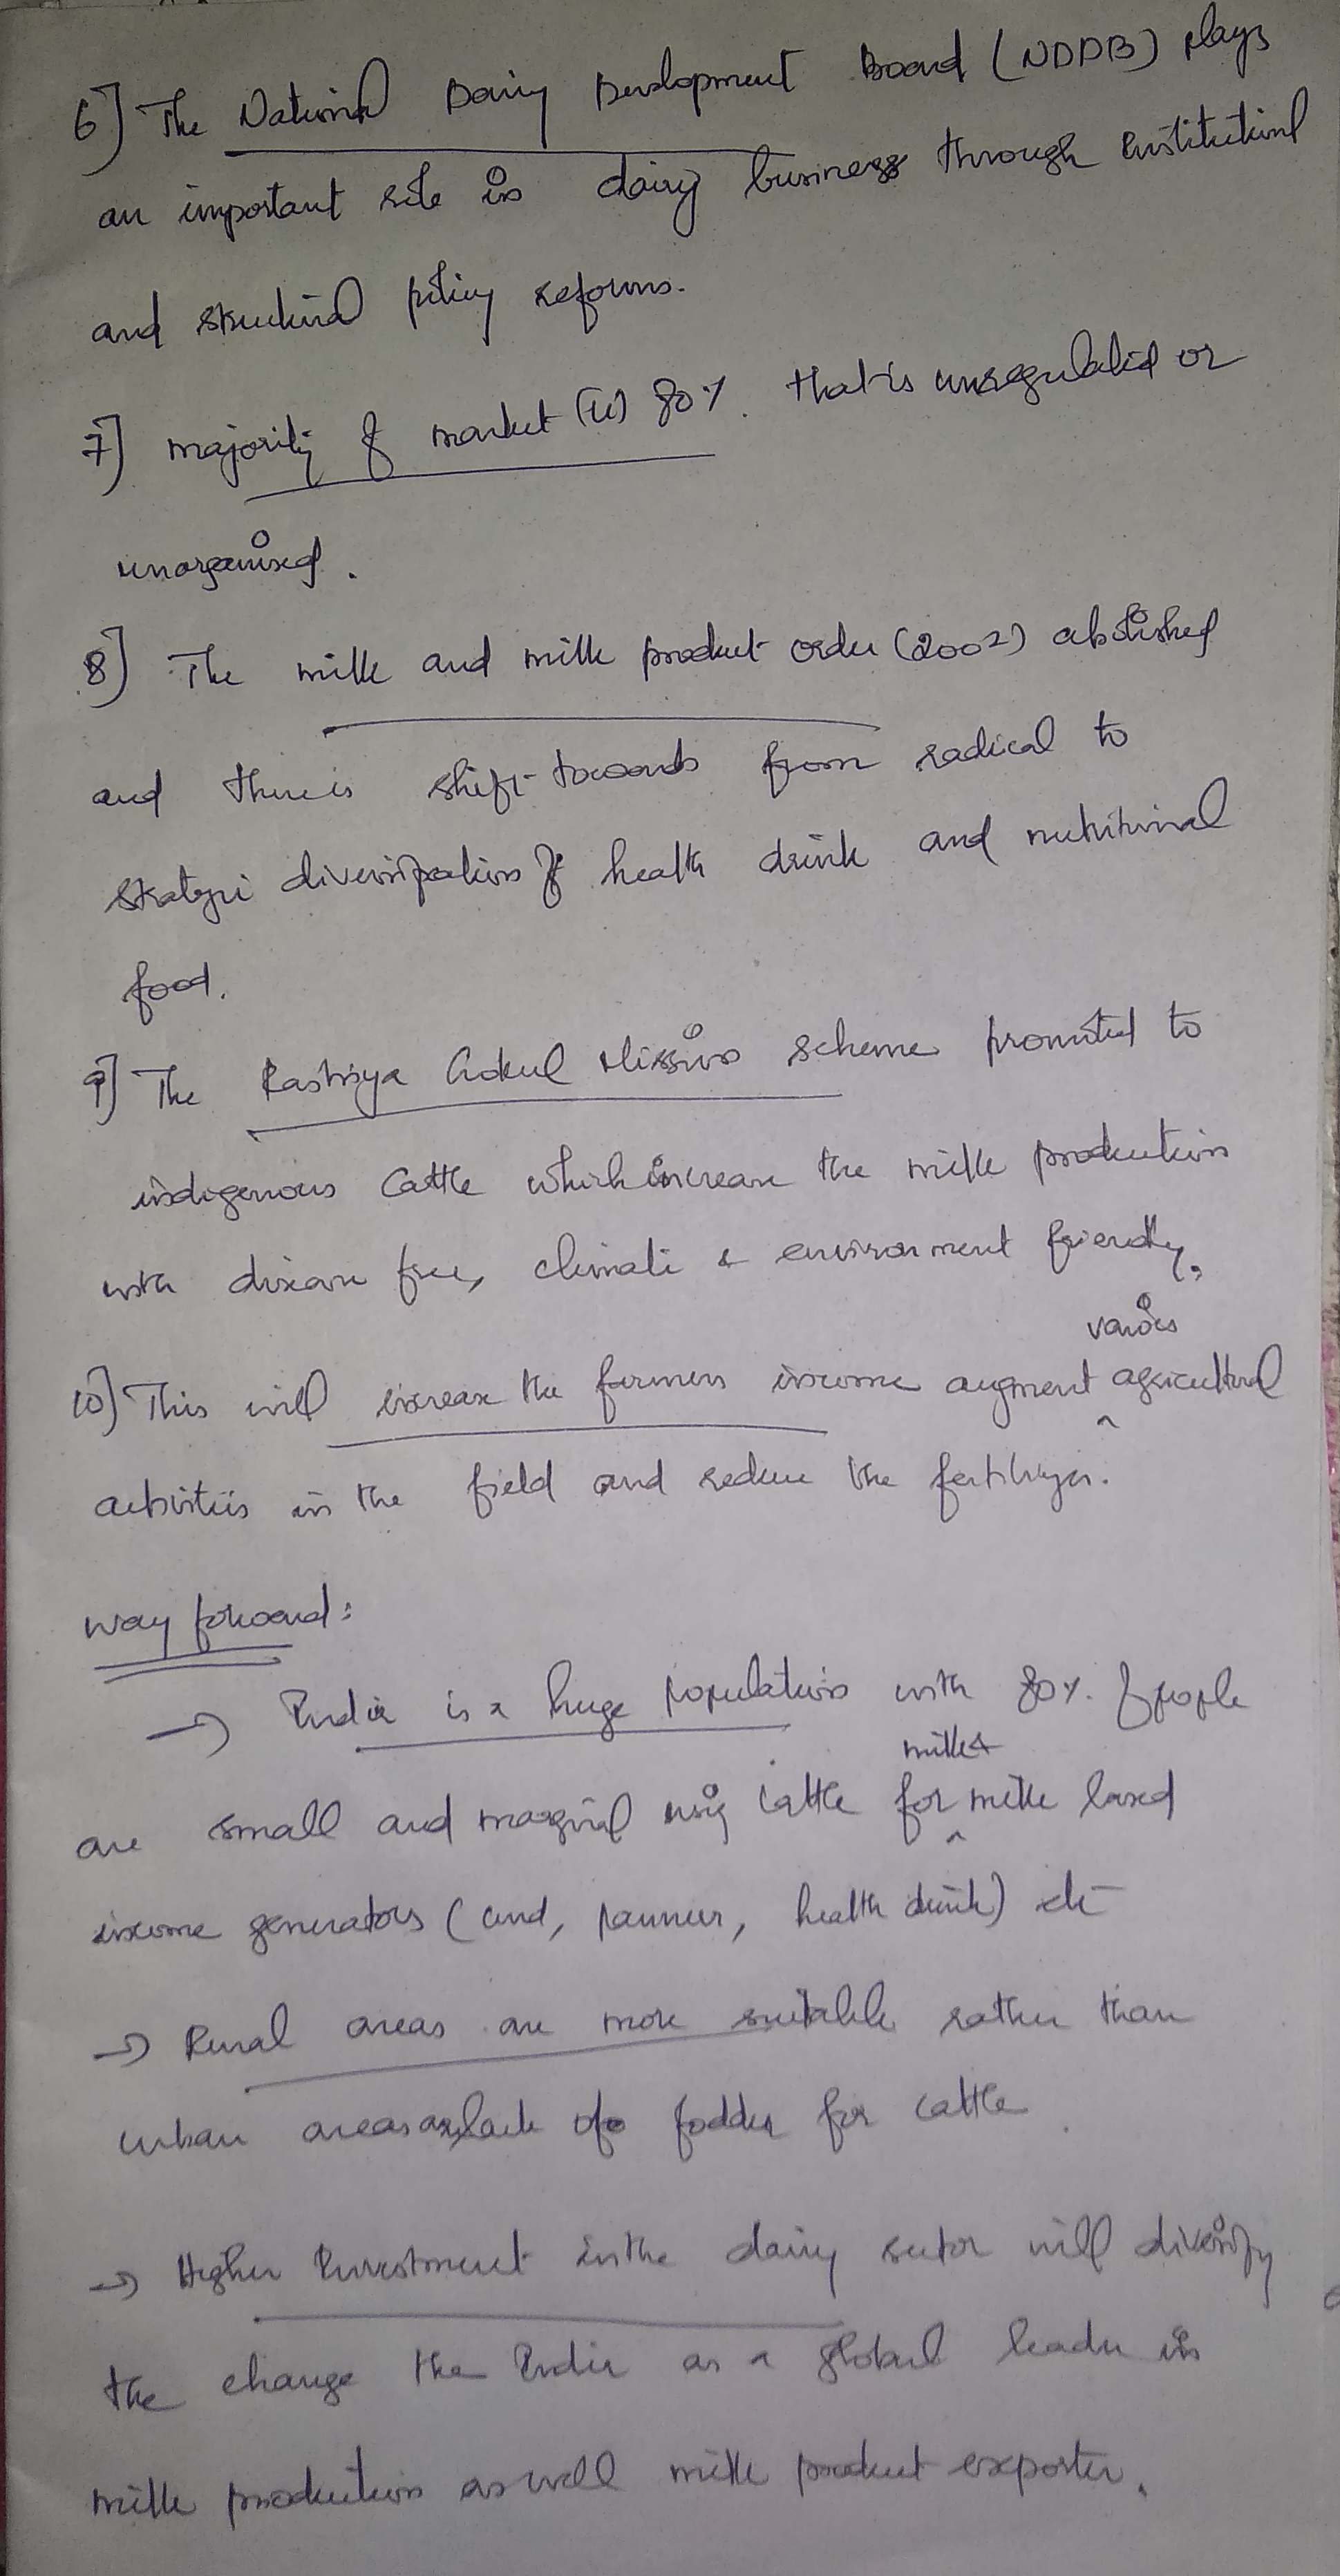 6] The National Dairy Development Board (NDDB) plays
an important role in dairy business through institutional
and structural policy reforms.
7] majority of market (ie) 80%. that is unregulated or
unorganised.
8] The milk and milk product order (2002) abolished
and there is shift towards from radical to
strategic diversification of health drink and nutritional
food.
9] The Rastriya Gokul Mission scheme promoted to
indigenous cattle which increase the milk production
with disease free, climate & environment friendly,
various
10] This will increase the farmers income augment ^ agricultural
activities in the field and reduce the fertilizer.
way forward:
→ India is a huge population with 80% of people
milk &
are small and marginal using cattle for ^ milk based
income generators (curd, panneer, health drink) etc
→ Rural areas are more suitable rather than
urban areas as lack of fodder for cattle
→ Higher Investment in the dairy sector will diversify
the change the India as a global leader in
milk production as well milk product exporter.